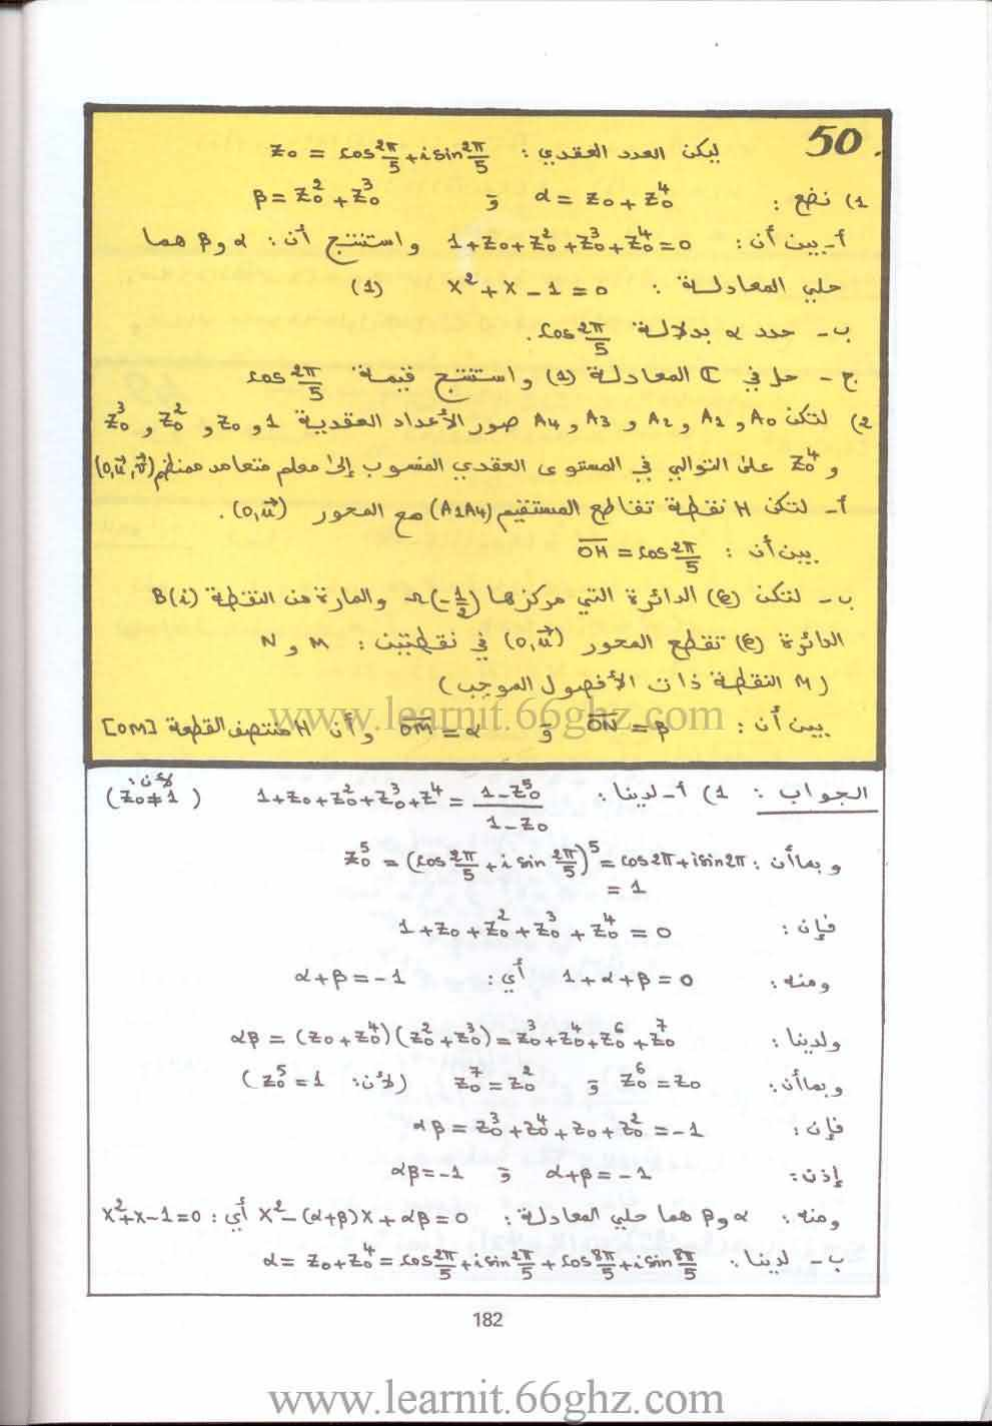 50.
ليكن العدد العقدي : z₀ = cos 2π/5 + i sin 2π/5
1) نضع : α = z₀ + z₀⁴ و β = z₀² + z₀³
أ- بين أن : 1 + z₀ + z₀² + z₀³ + z₀⁴ = 0 واستنتج أن : α و β هما
حلي المعادلة : x² + x - 1 = 0 (1)
ب- حدد α بدلالة cos 2π/5.
ج- حل في ℂ المعادلة (1) واستنتج قيمة cos 2π/5
2) لتكن A₀ و A₁ و A₂ و A₃ و A₄ صور الأعداد العقدية 1 و z₀ و z₀² و z₀³
و z₀⁴ على التوالي في المستوى العقدي المنسوب إلى معلم متعامد ممنظم (o,u⃗,v⃗)
أ- لتكن H نقطة تقاطع المستقيم (A₁A₄) مع المحور (o,u⃗).
بين أن : O̅H̅ = cos 2π/5
ب- لتكن (𝒞) الدائرة التي مركزها Ω(-1/2) والمارة من النقطة B(i)
الدائرة (𝒞) تقطع المحور (o,u⃗) في نقطتين : M و N
(M النقطة ذات الأفصول الموجب)
بين أن : O̅N̅ = β و O̅M̅ = α و أن H منتصف القطعة [OM]
www.learnit.66ghz.com
الجواب : 1) أ- لدينا : 1 + z₀ + z₀² + z₀³ + z⁴ = (1 - z₀⁵)/(1 - z₀) (لأن : z₀ ≠ 1)
و بما أن : z₀⁵ = (cos 2π/5 + i sin 2π/5)⁵ = cos 2π + i sin 2π
= 1
فإن : 1 + z₀ + z₀² + z₀³ + z₀⁴ = 0
ومنه : 1 + α + β = 0 أي : α + β = -1
ولدينا : αβ = (z₀ + z₀⁴)(z₀² + z₀³) = z₀³ + z₀⁴ + z₀⁶ + z₀⁷
و بما أن : z₀⁶ = z₀ و z₀⁷ = z₀² (لأن : z₀⁵ = 1)
فإن : αβ = z₀³ + z₀⁴ + z₀ + z₀² = -1
إذن : α + β = -1 و αβ = -1
ومنه : α و β هما حلي المعادلة : x² - (α+β)x + αβ = 0 أي : x² + x - 1 = 0
ب- لدينا : α = z₀ + z₀⁴ = cos 2π/5 + i sin 2π/5 + cos 8π/5 + i sin 8π/5
182
www.learnit.66ghz.com